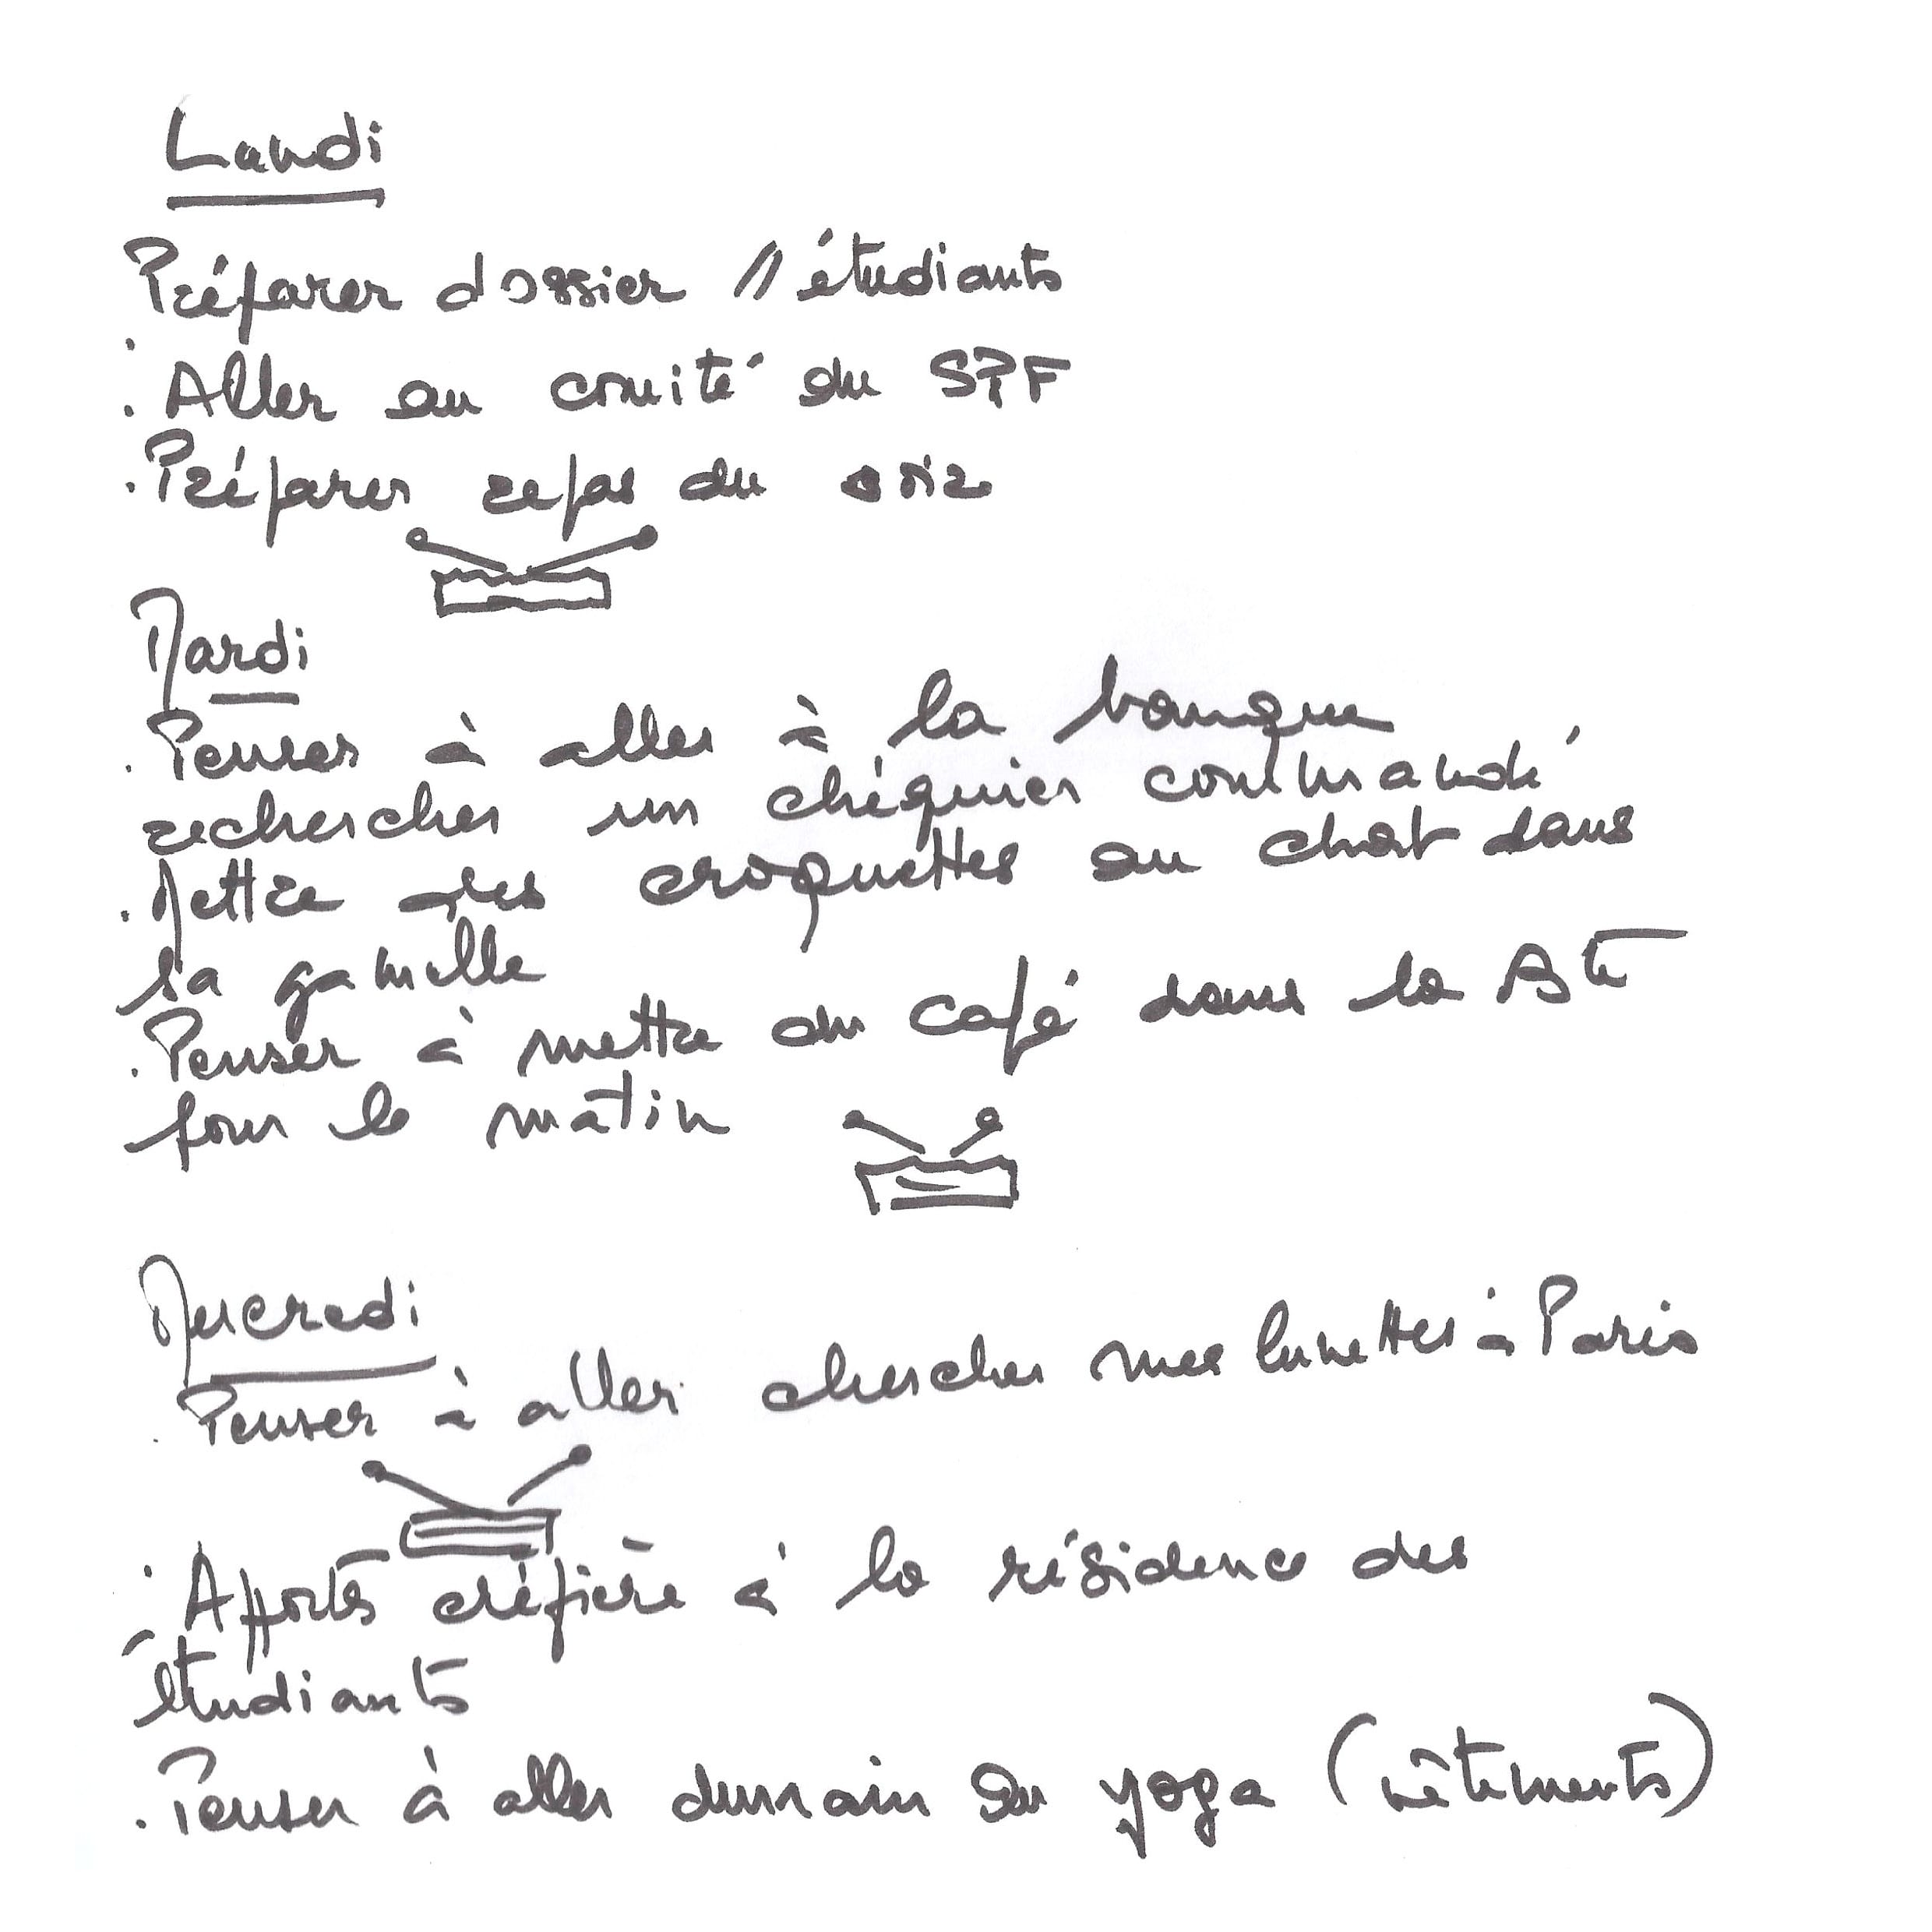 Lundi
Préparer dossier // étudiants
. Aller au comité du SPF
. Préparer repas du soir
Mardi
. Penser à aller à la banque
rechercher un chéquier commandé
. Mettre des croquettes au chat dans
sa gamelle
. Penser à mettre du café dans la Bte
pour le matin
Mercredi
. Penser à aller chercher mes lunettes à Paris
. Apporter crêpière à la résidence des
étudiants
. Penser à aller demain au yoga (vêtements)